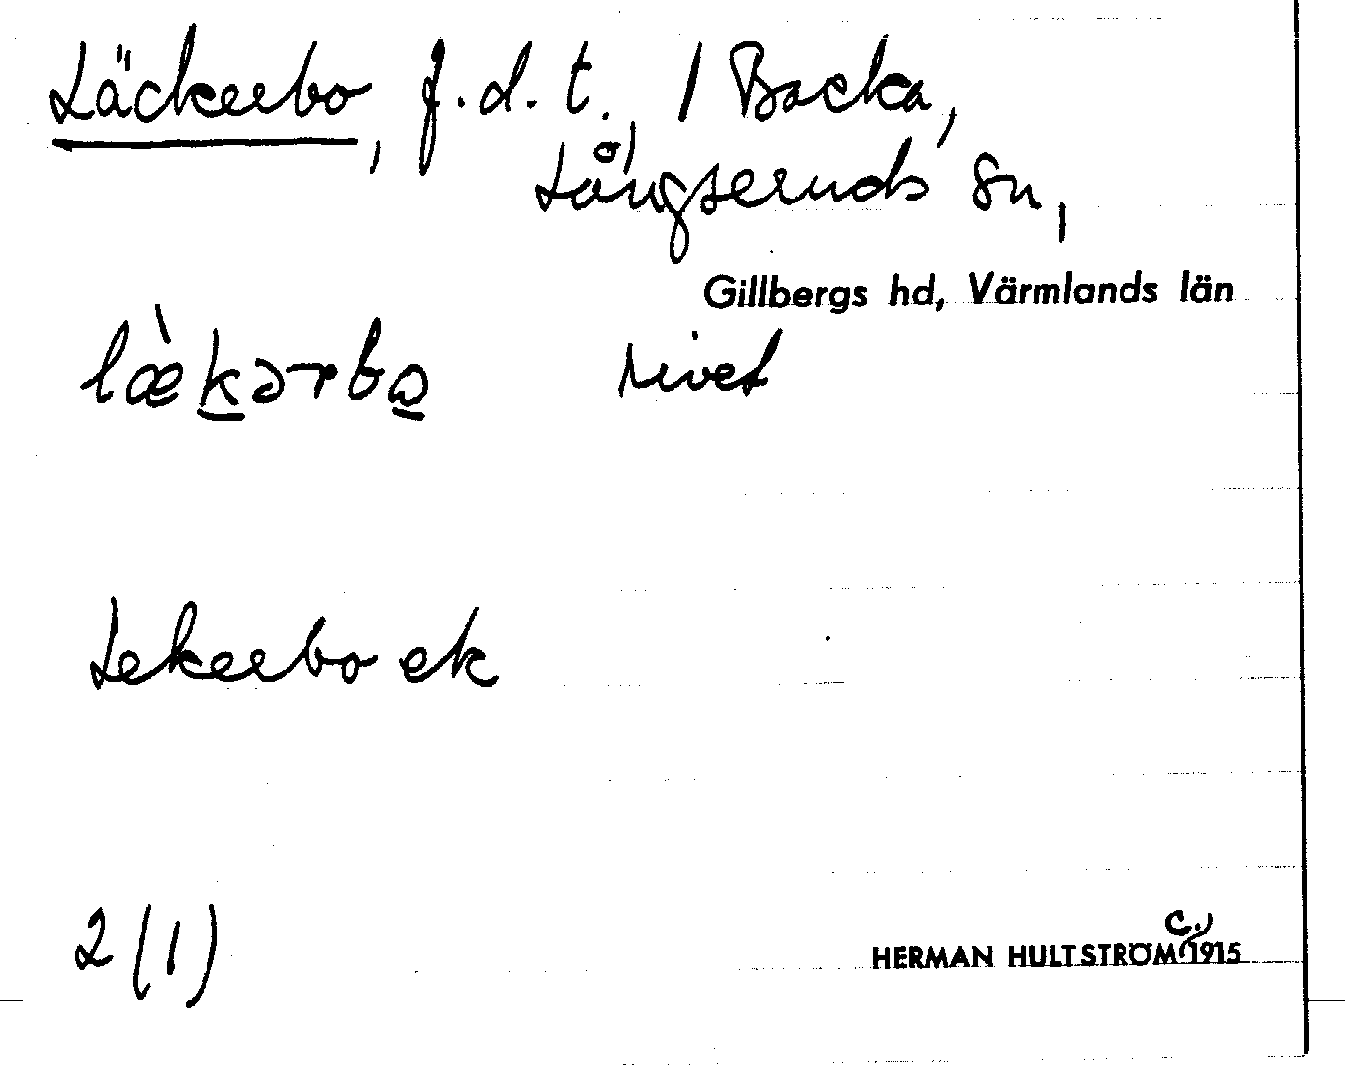 Läckerbo, f.d.t. 1 Backa,
Långseruds sn,
Gillbergs hd, Värmlands län
læ̀k̲ərbo̲ rivet
Lekerbo ek
2 (1)
HERMAN HULTSTRÖM c. 1915